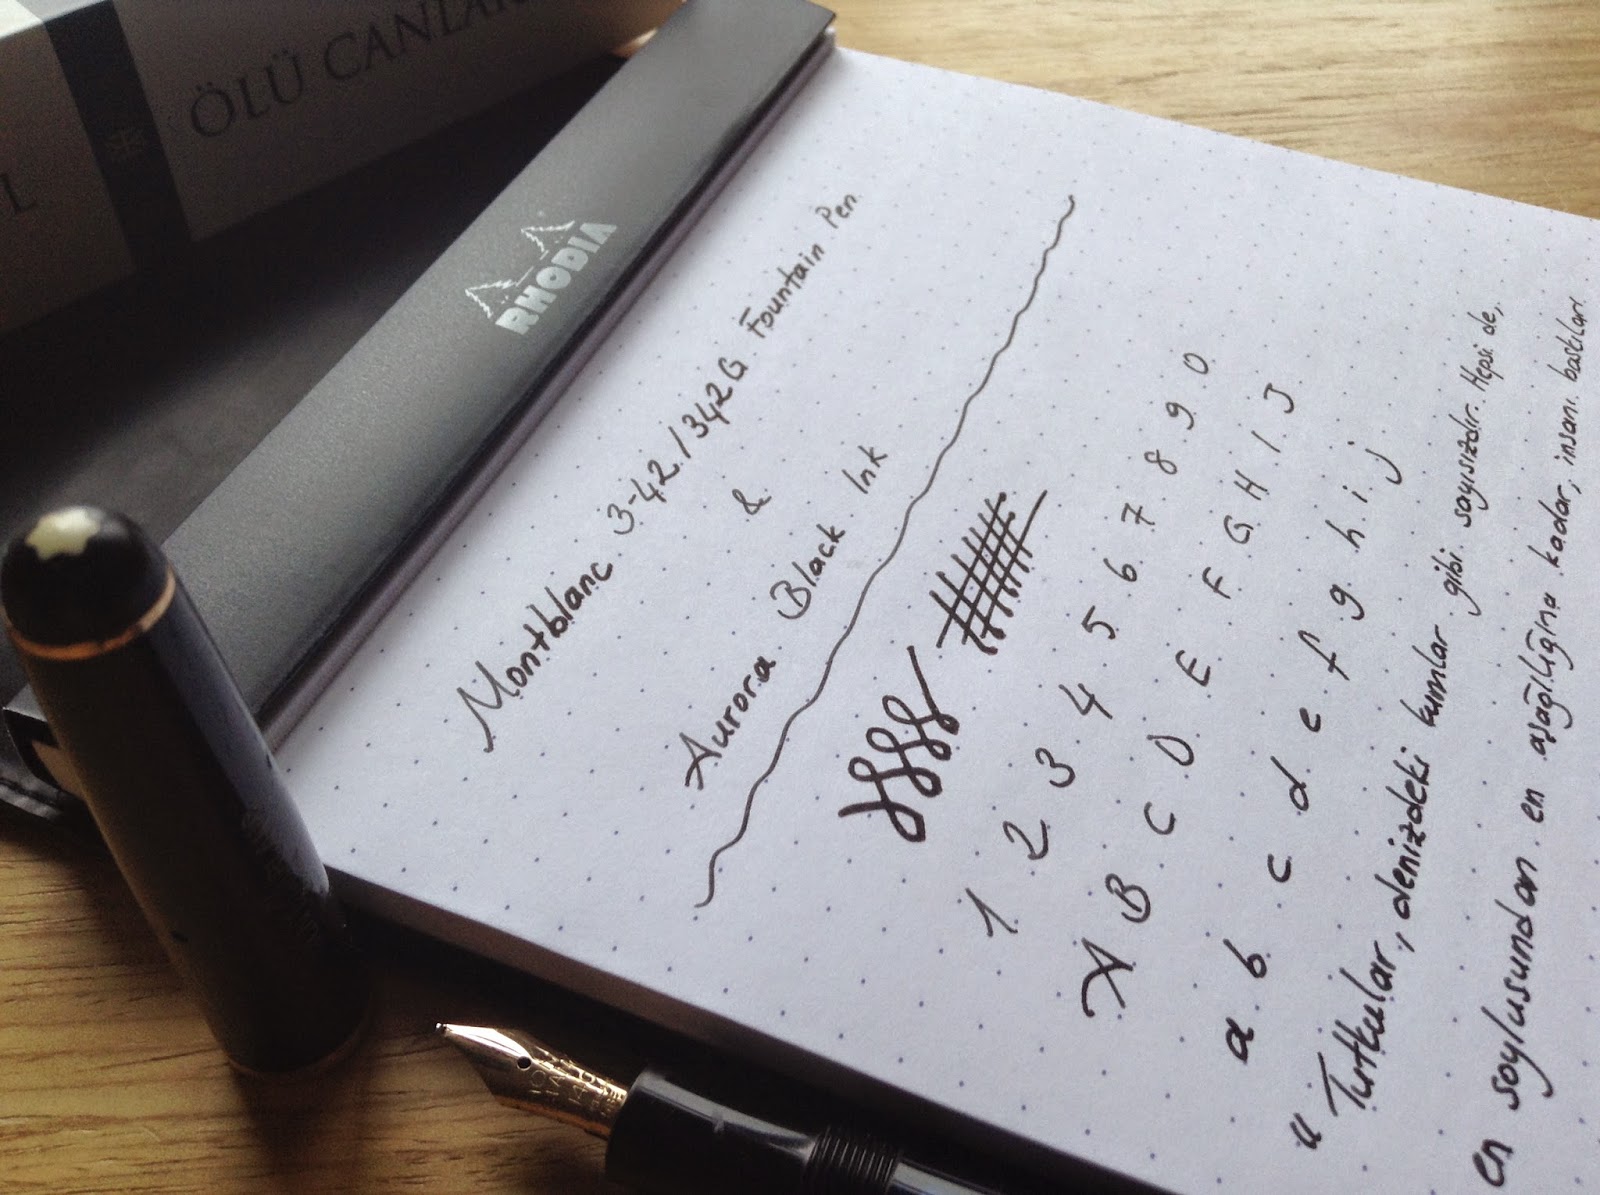 ÖLÜ CANLAR
L
RHODIA
Montblanc 3-42 / 342G Fountain Pen
&
Aurora Black Ink
1 2 3 4 5 6 7 8 9 0
A B C D E F G H I J
a b c d e f g h i j
"Tutkular, denizdeki kumlar gibi sayısızdır. Hepsi de,
en soylusundan en aşağılığına kadar, insanı baştıları